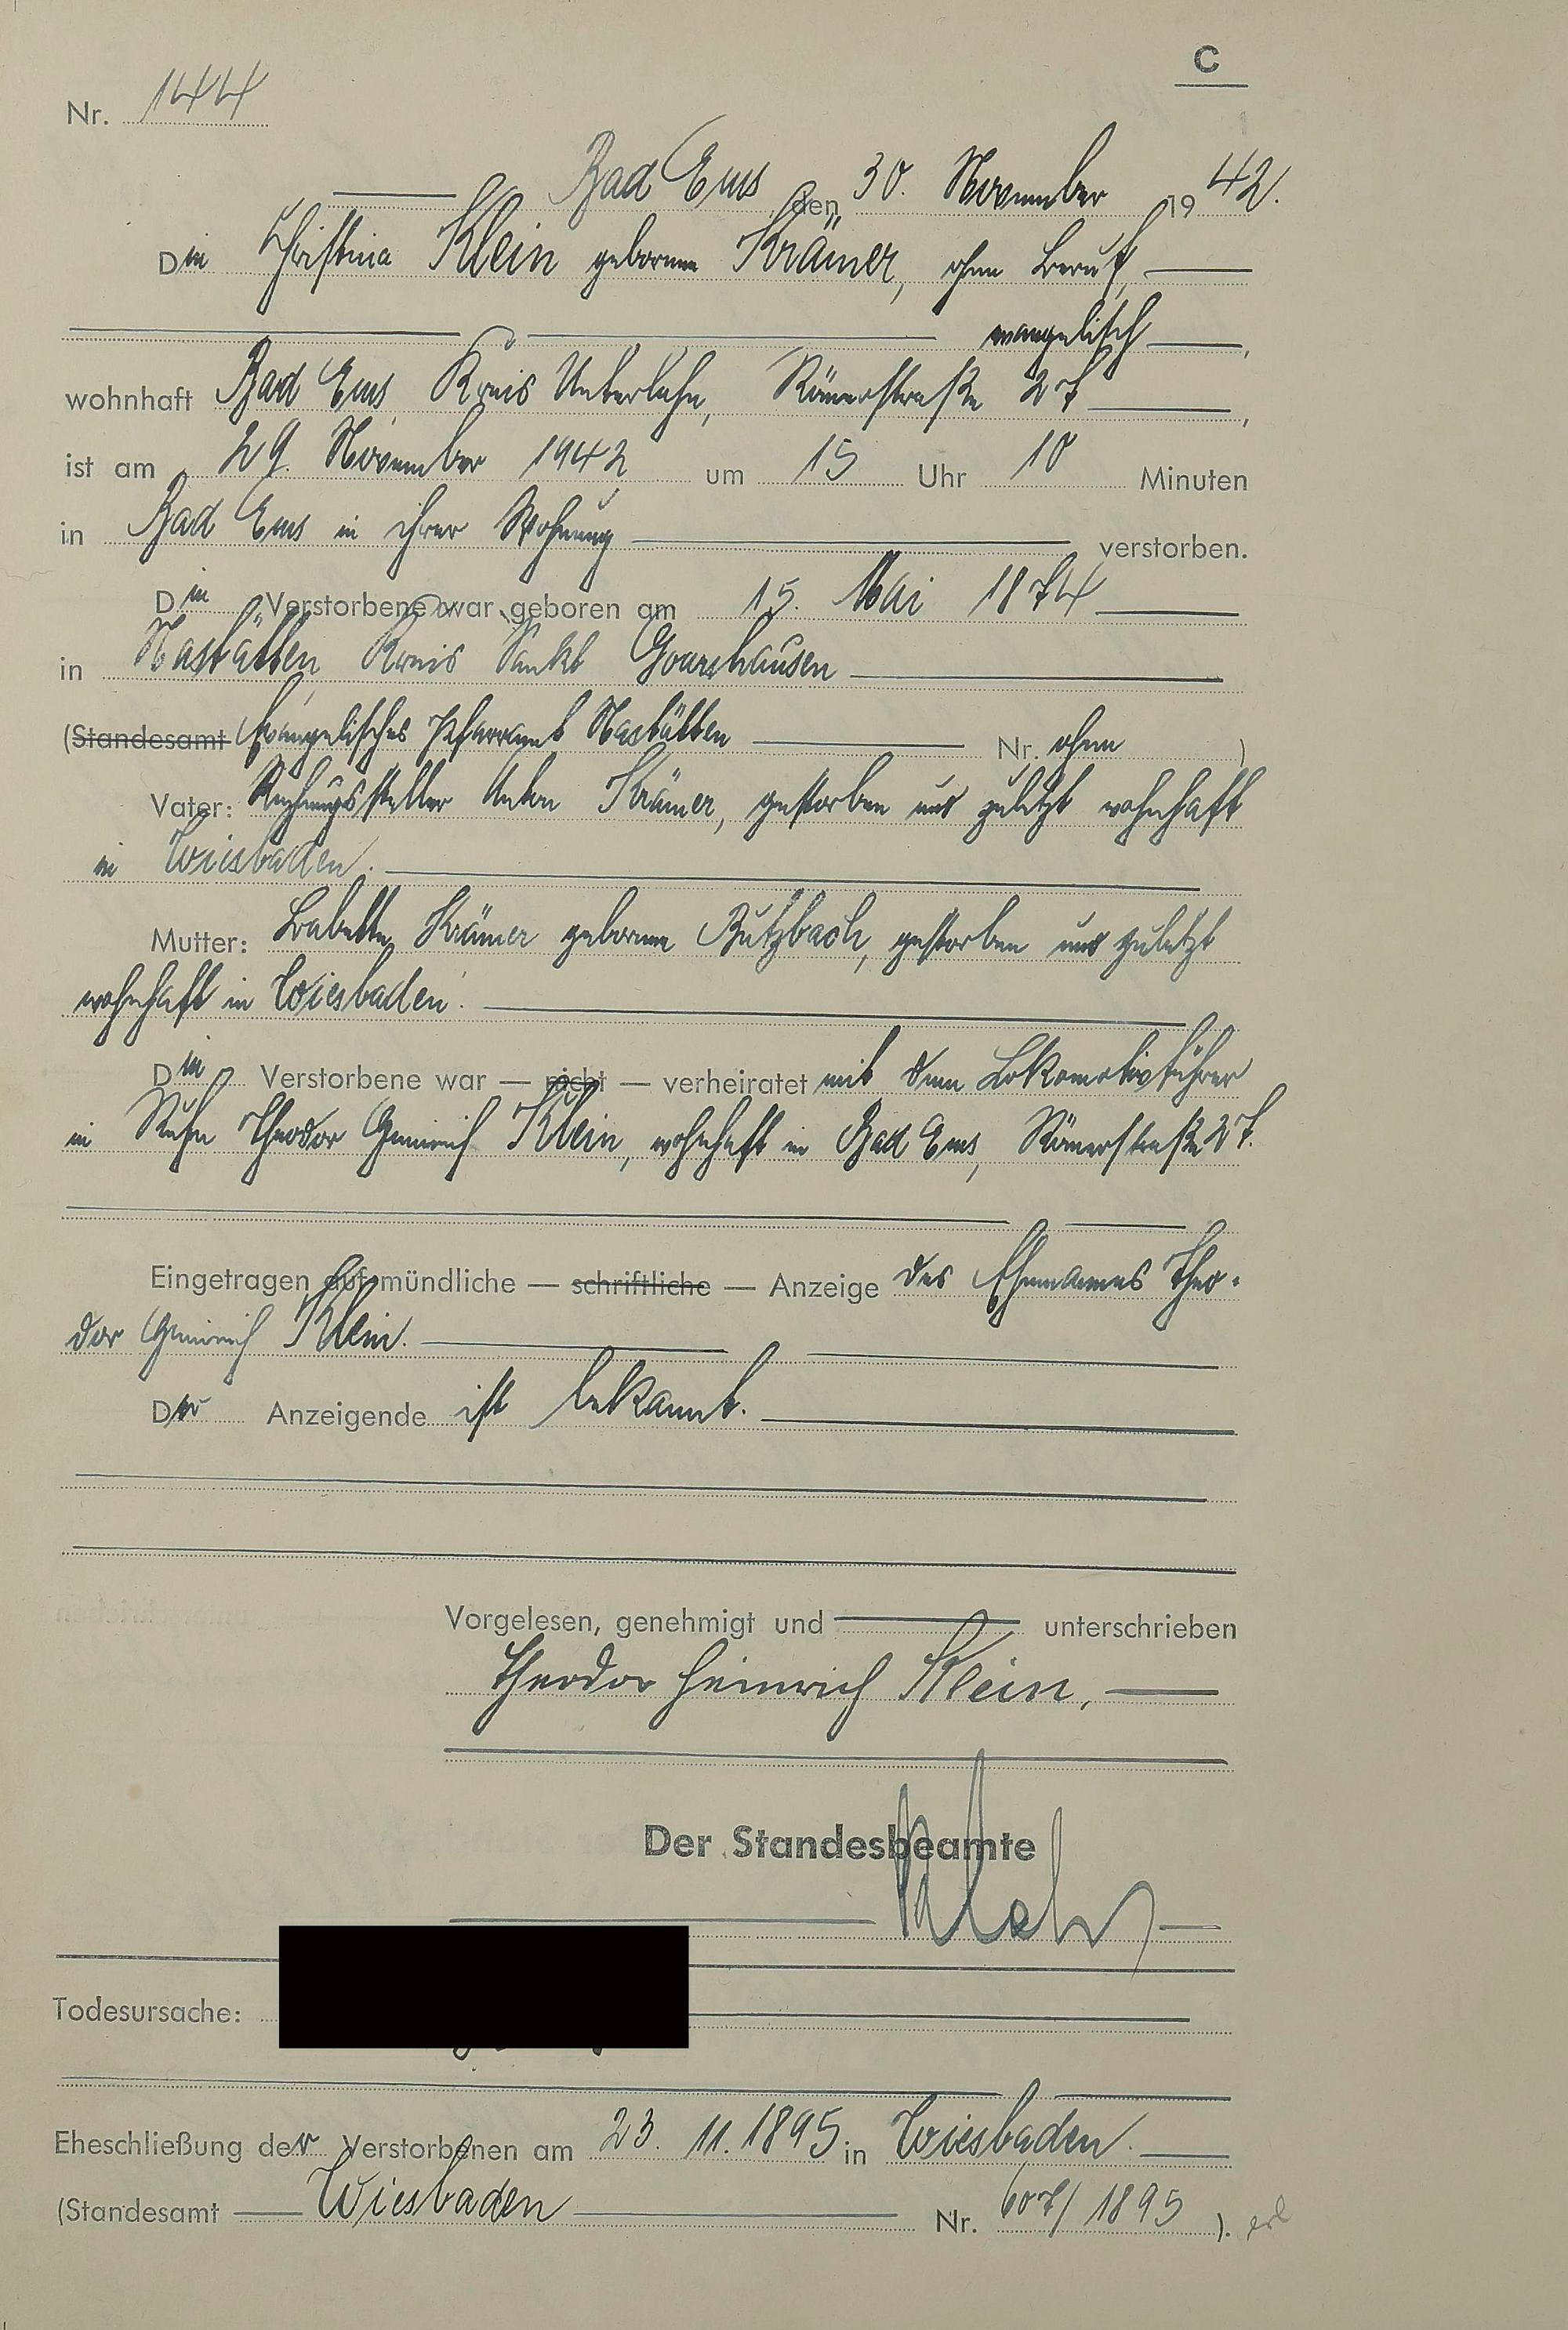 C
Nr. 144
Bad Ems den 30. November 1942.
Die Christina Klein geborene Krämer, ohne Beruf,
evangelisch,
wohnhaft Bad Ems, Kreis Unterlahn, Römerstraße 27,
ist am 29. November 1942 um 15 Uhr 10 Minuten
in Bad Ems in ihrer Wohnung verstorben.
Die Verstorbene war geboren am 15. Mai 1874
in Nastätten, Kreis Sankt Goarshausen
(Standesamt Evangelisches Pfarramt Nastätten Nr. ohne)
Vater: Anton Krämer, gestorben und zuletzt wohnhaft
in Wiesbaden.
Mutter: Babette Krämer geborene Butzbach, gestorben und zuletzt
wohnhaft in Wiesbaden.
Die Verstorbene war — nicht — verheiratet mit dem Lokomotivführer
in Ruhe Theodor Heinrich Klein, wohnhaft in Bad Ems, Römerstraße 27.
Eingetragen auf mündliche — schriftliche — Anzeige des Ehemannes Theo-
dor Heinrich Klein.
Der Anzeigende ist bekannt.
Vorgelesen, genehmigt und unterschrieben
Theodor Heinrich Klein.
Der Standesbeamte
Todesursache:
Eheschließung der Verstorbenen am 23. 11. 1895 in Wiesbaden.
(Standesamt Wiesbaden Nr. 607/1895). erl